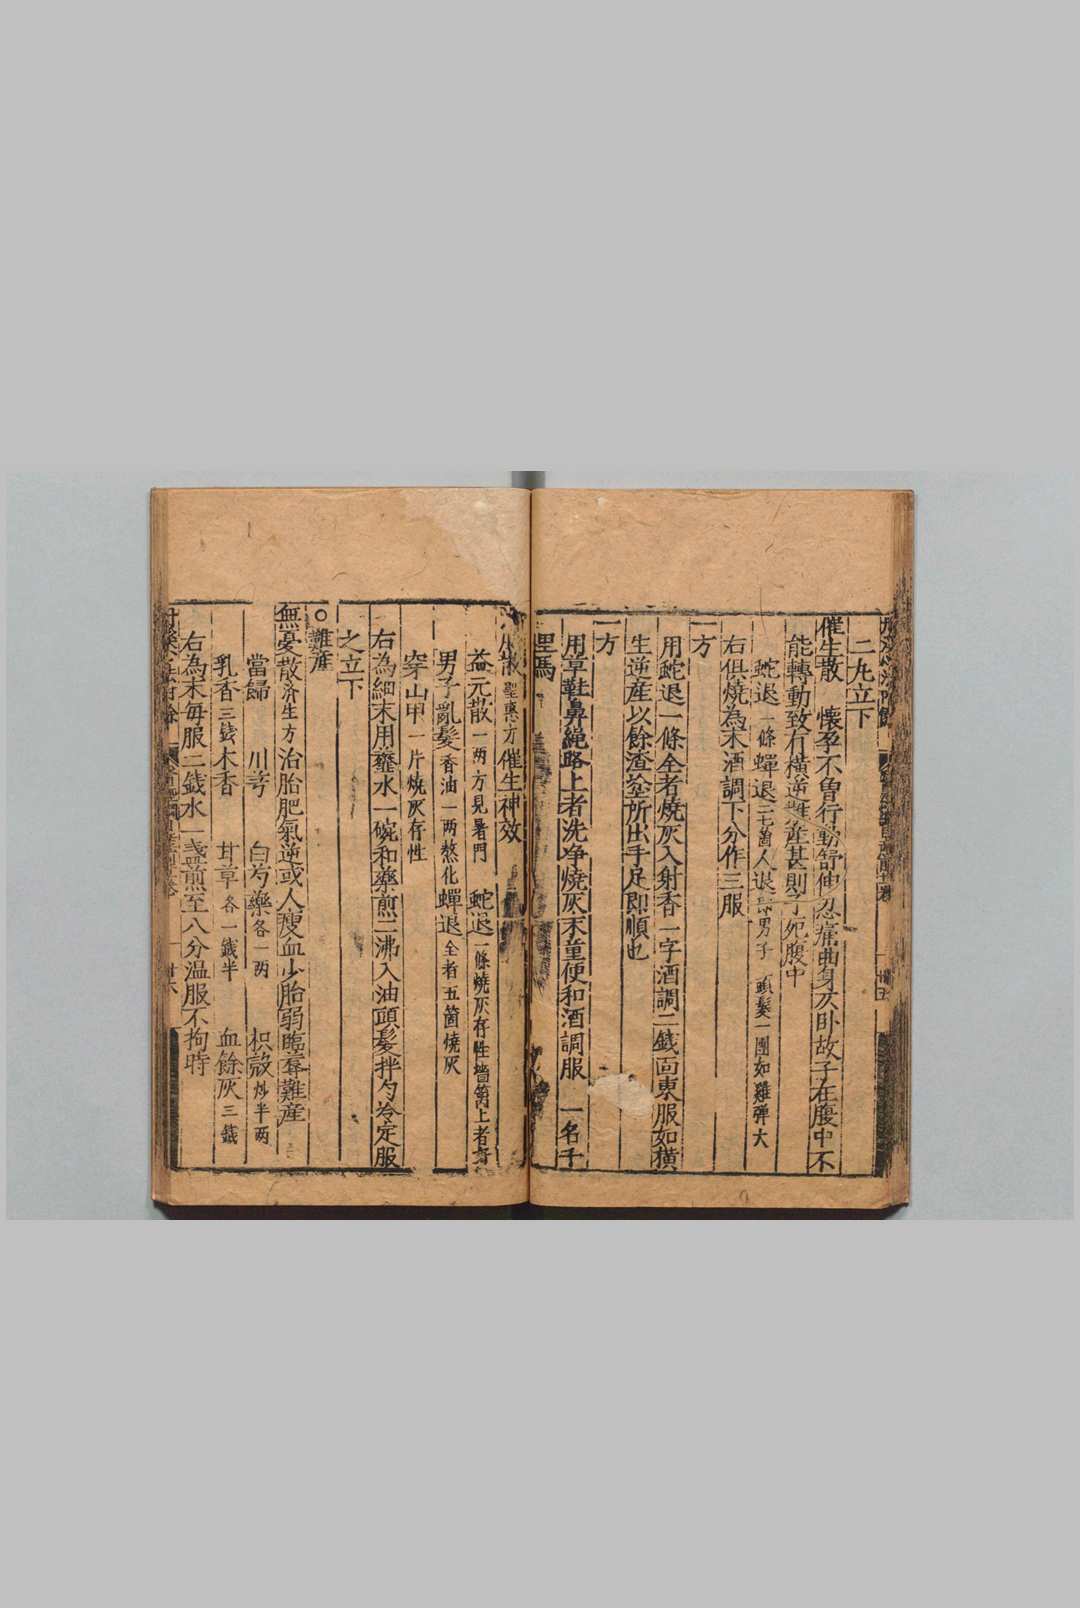 二丸立下
催生散 懷孕不曾行動舒伸忍痛曲身仄卧故子在腹中不
能轉動致有橫逆難產甚則子死腹中
蛇退一條蟬退二七箇人退即男子頭髮一團如雞彈大
右俱燒為末酒調下分作三服
一方
用蛇退一條全者燒灰入射香一字酒調二錢面東服如橫
生逆產以餘渣塗所出手足即順也
一方
用草鞋鼻繩路上者洗净燒灰末童便和酒調服 一名千
里馬
散聖惠方催生神效
益元散一两方見暑門 蛇退一條燒灰存性墻篱上者
男子亂髮香油一两熬化蟬退全者五箇燒灰
穿山甲一片燒灰存性
右為細末用虀水一碗和藥煎二沸入油頭髮拌勻冷定服
之立下
○難產
無憂散濟生方治胎肥氣逆或人瘦血少胎弱臨蓐難産
當歸 川芎 白芍藥各一两 枳殻炒半两
乳香三錢木香 甘草各一錢半 血餘灰三錢
右為末每服二錢水一盞煎至八分温服不拘時